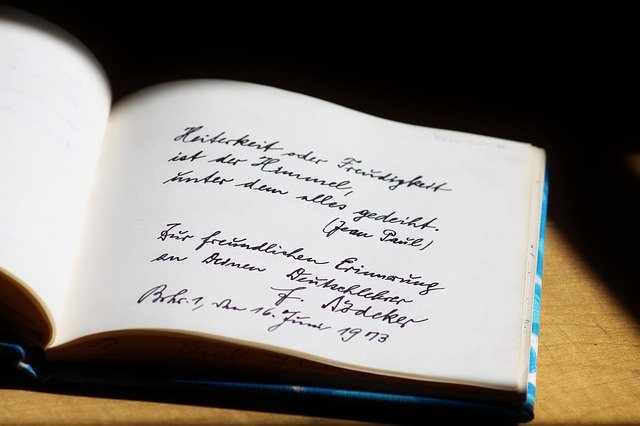 Heiterkeit oder Freudigkeit
ist der Himmel,
unter dem alles gedeiht.
(Jean Paul)
Zur freundlichen Erinnerung
an Deinen Deutschlehrer
F. Lödeker
1, den 16. Juni 1973